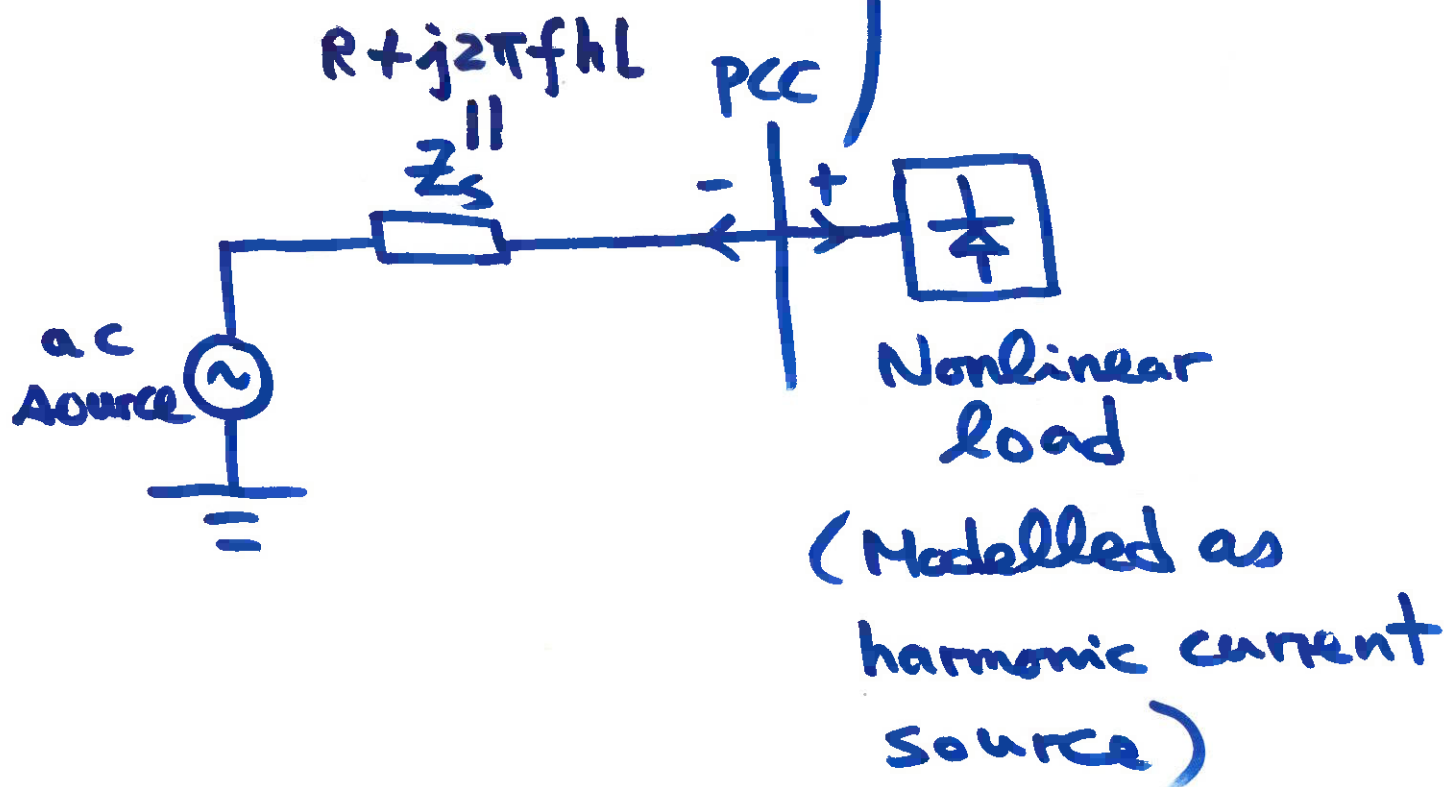 R+j2πfhL
||
Zs
PCC
)
- +
ac
source
~
Nonlinear
load
(Modelled as
harmonic current
source)